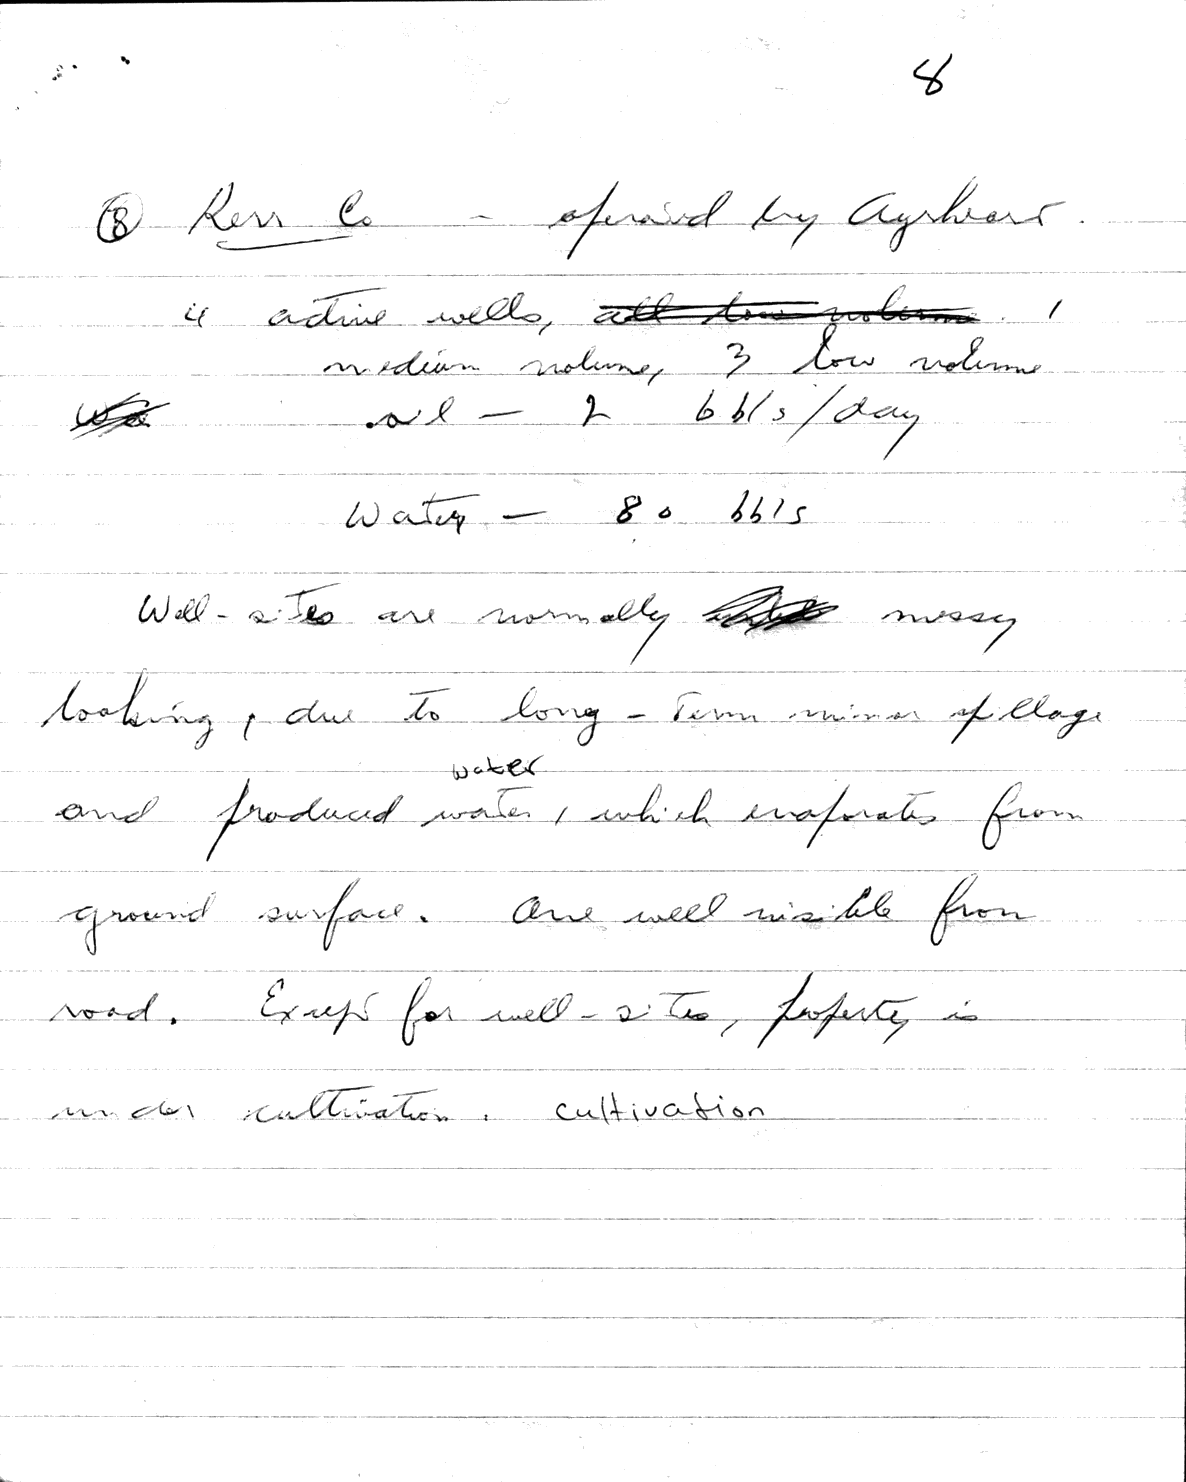 8
⑧ Kerr Co - operated by Ayrheart.
4 active wells, all low volume. 1
medium volume, 3 low volume
oil - 2 bbls/day
Water - 80 bbls
Well-sites are normally messy
looking, due to long-term minor spillage
water
and produced water, which evaporates from
ground surface. One well visible from
road. Except for well-sites, property is
under cultivation. cultivation